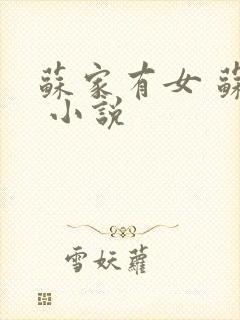 蘇家有女 蘇
小說
雪妖蘿